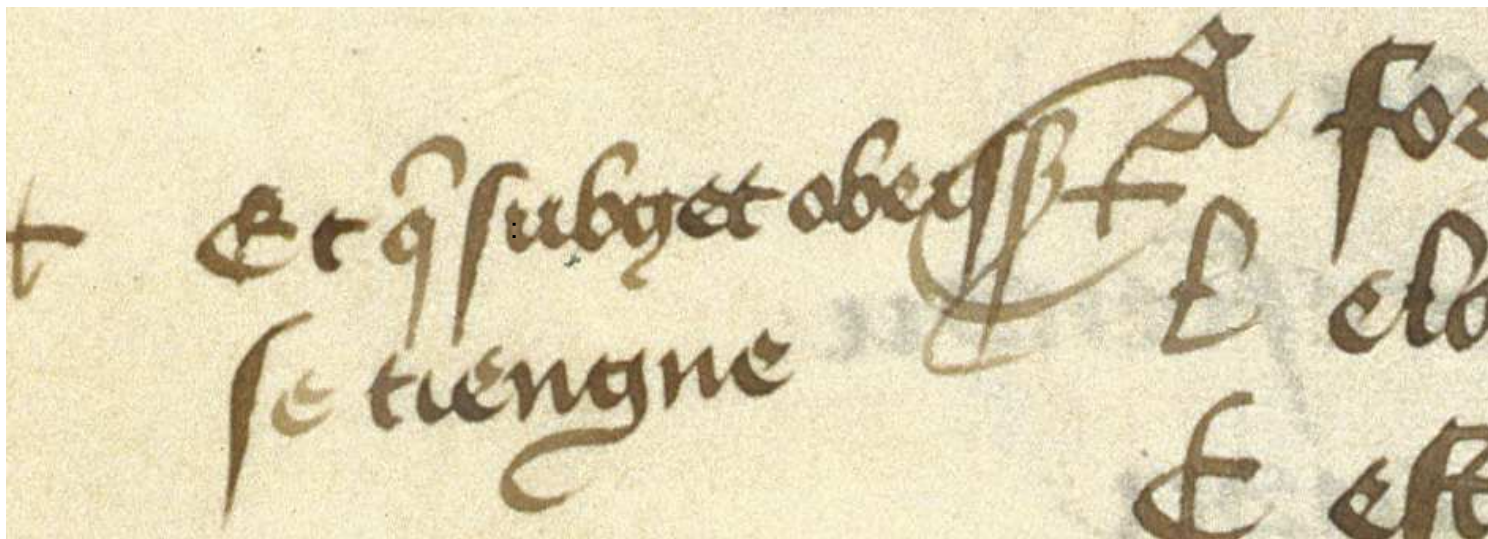 Et q̃ subget obeiss
se tiengne
A for
L
E est